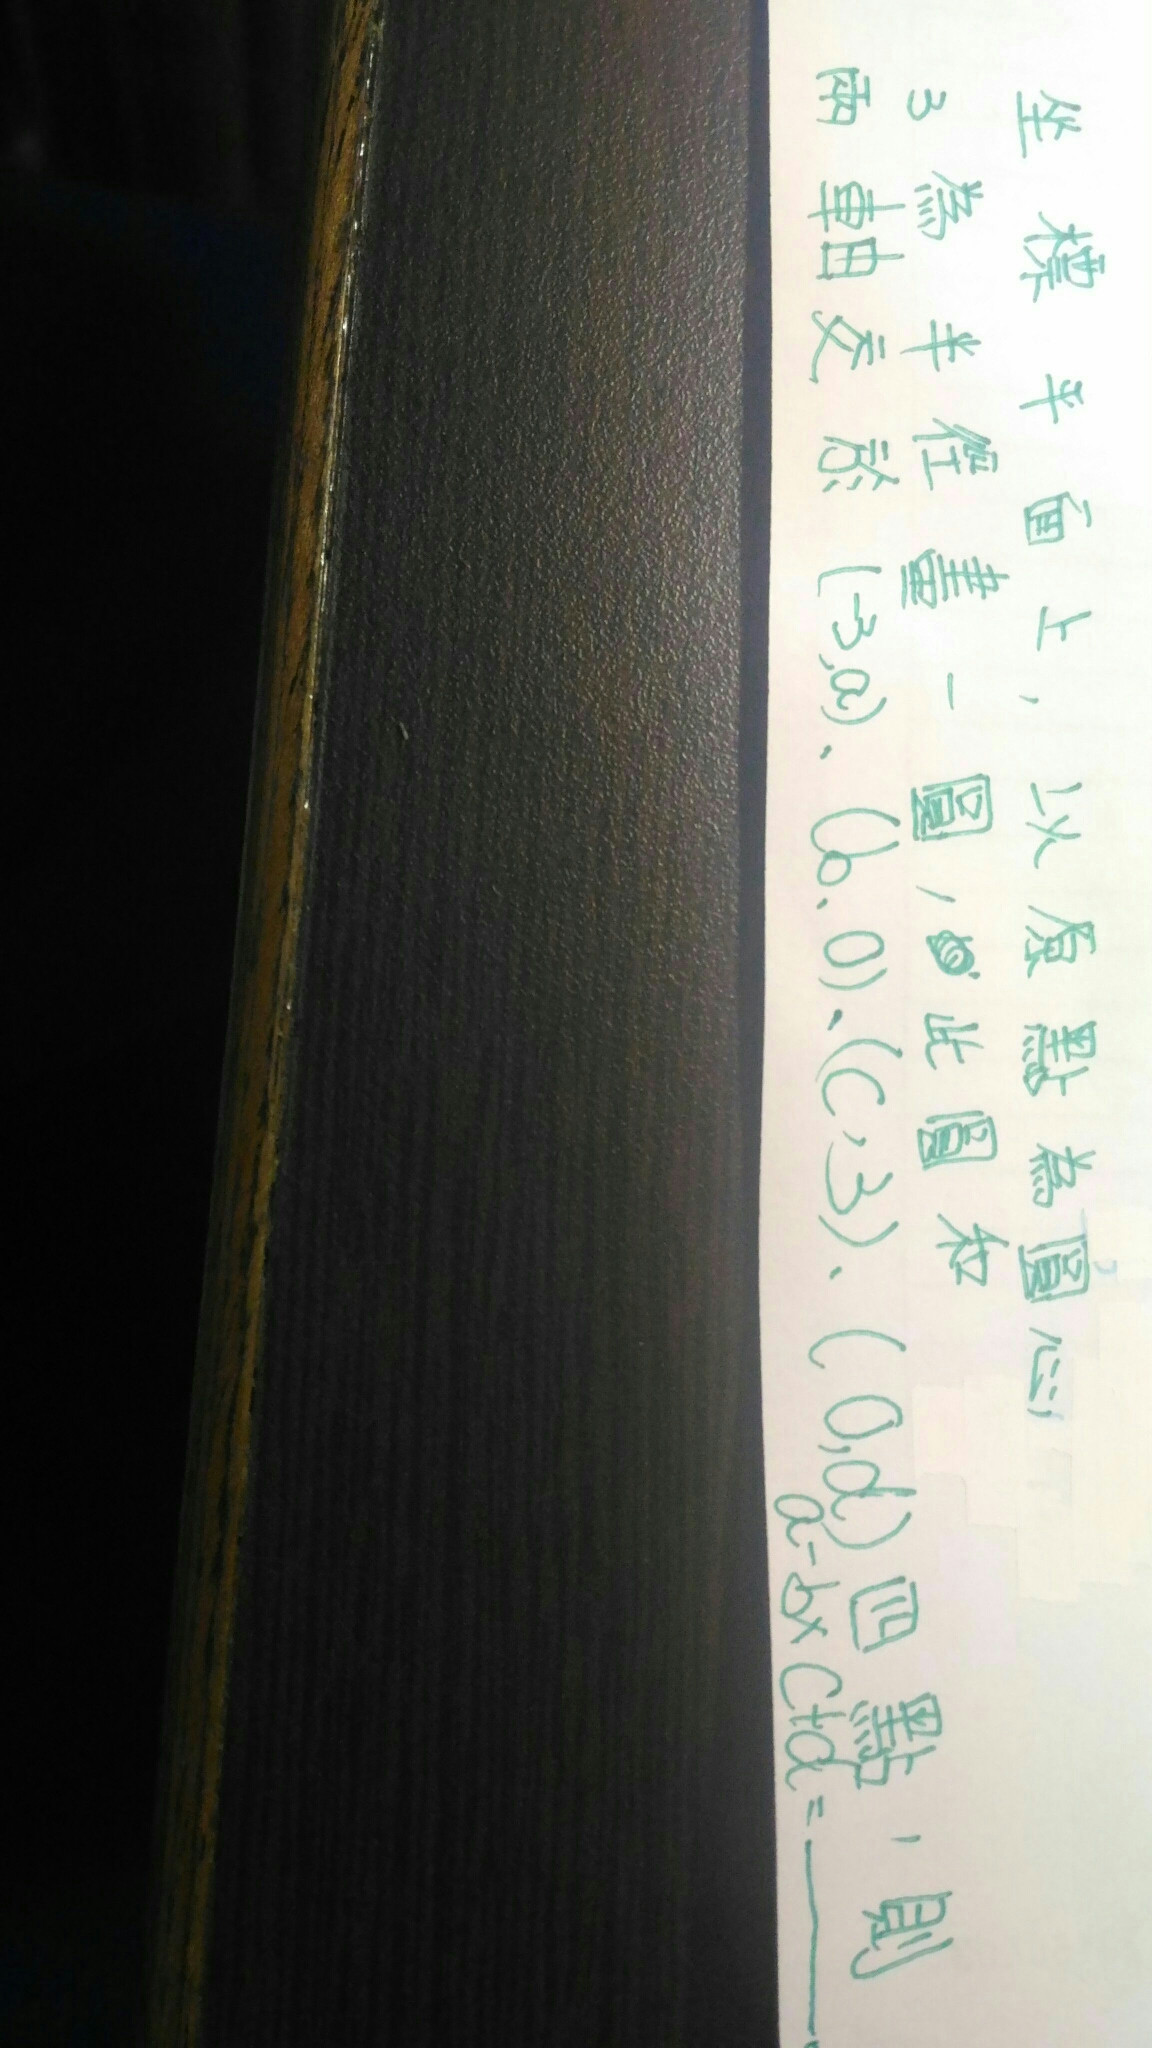 坐標平面上,以原點為圓心,
3為半徑畫一圓,此圓和
兩軸交於(-3,a)、(b、0)、(c,3)、(0,d)四點,則
a-b×c+d=